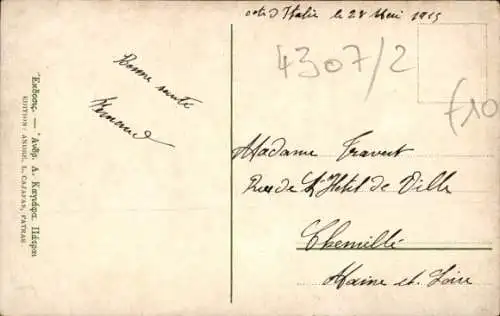 cote d'Italie le 28 Mai 1915
4307/2
f10
Bonne santé
Fernand
Madame Travert
Rue de L'Hotel de Ville
Chemillé
Maine et Loire
Ἔκδοσις. — Ἀνδρ. Λ. Καγιάφα Πάτραι
EDITION: ANDRÉ, L. CAZAFAS, PATRAS